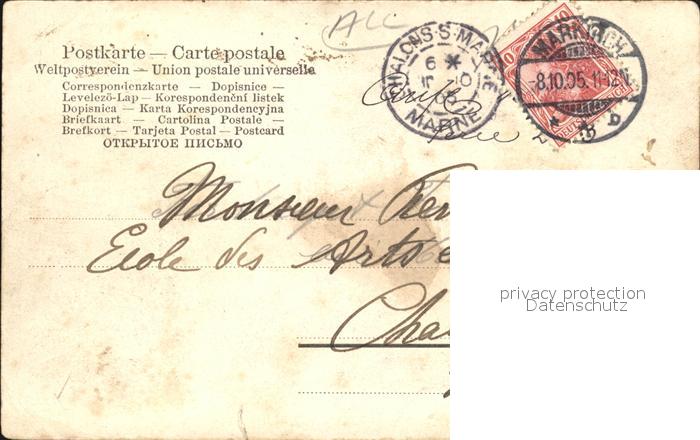 ALL
Postkarte — Carte postale
Weltpostverein — Union postale universelle
Correspondenzkarte — Dopisnice —
Levelező-Lap — Korespondenční lístek
Dopisnica — Karta Korespondencyjna
Briefkaart — Cartolina Postale —
Brefkort — Tarjeta Postal — Postcard
ОТКРЫТОЕ ПИСЬМО
CHALONS-S-MARNE
6 *
MARNE
MARKIRCH
-8.10.05. 11-12N
* * b
10
Monsieur
Ecole des Arts
Cha
privacy protection
Datenschutz